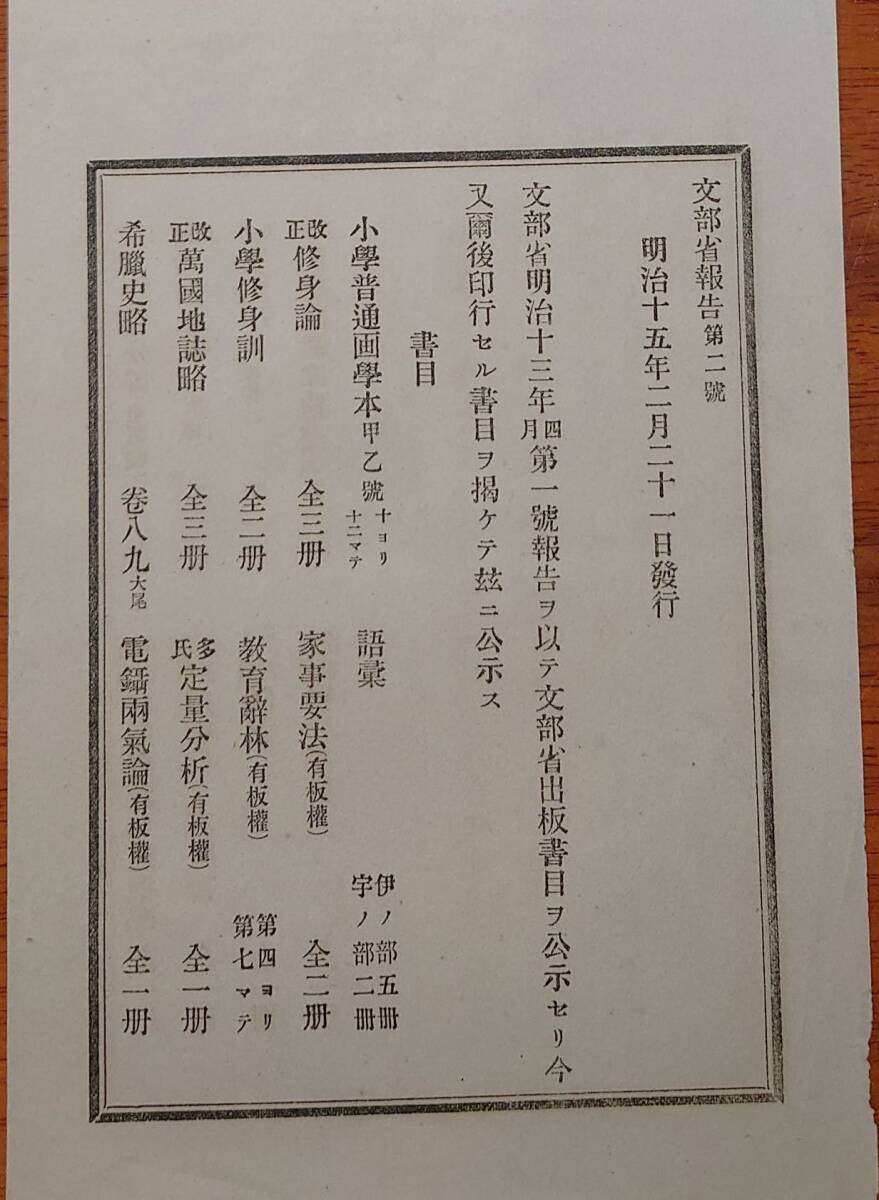 文部省報告第二號
明治十五年二月二十一日發行
文部省明治十三年四月第一號報告ヲ以テ文部省出板書目ヲ公示セリ今
又爾後印行セル書目ヲ揭ケテ玆ニ公示ス
書目
小學普通画學本甲乙號十ヨリ十二マテ 語彙 伊ノ部五冊宇ノ部二冊
改正修身論 全三册 家事要法(有板權) 全二册
小學修身訓 全二册 教育辭林(有板權) 第四ヨリ第七マテ
改正萬國地誌略 全三册 多氏定量分析(有板權) 全一册
希臘史略 卷八九大尾 電鑷兩氣論(有板權) 全一册